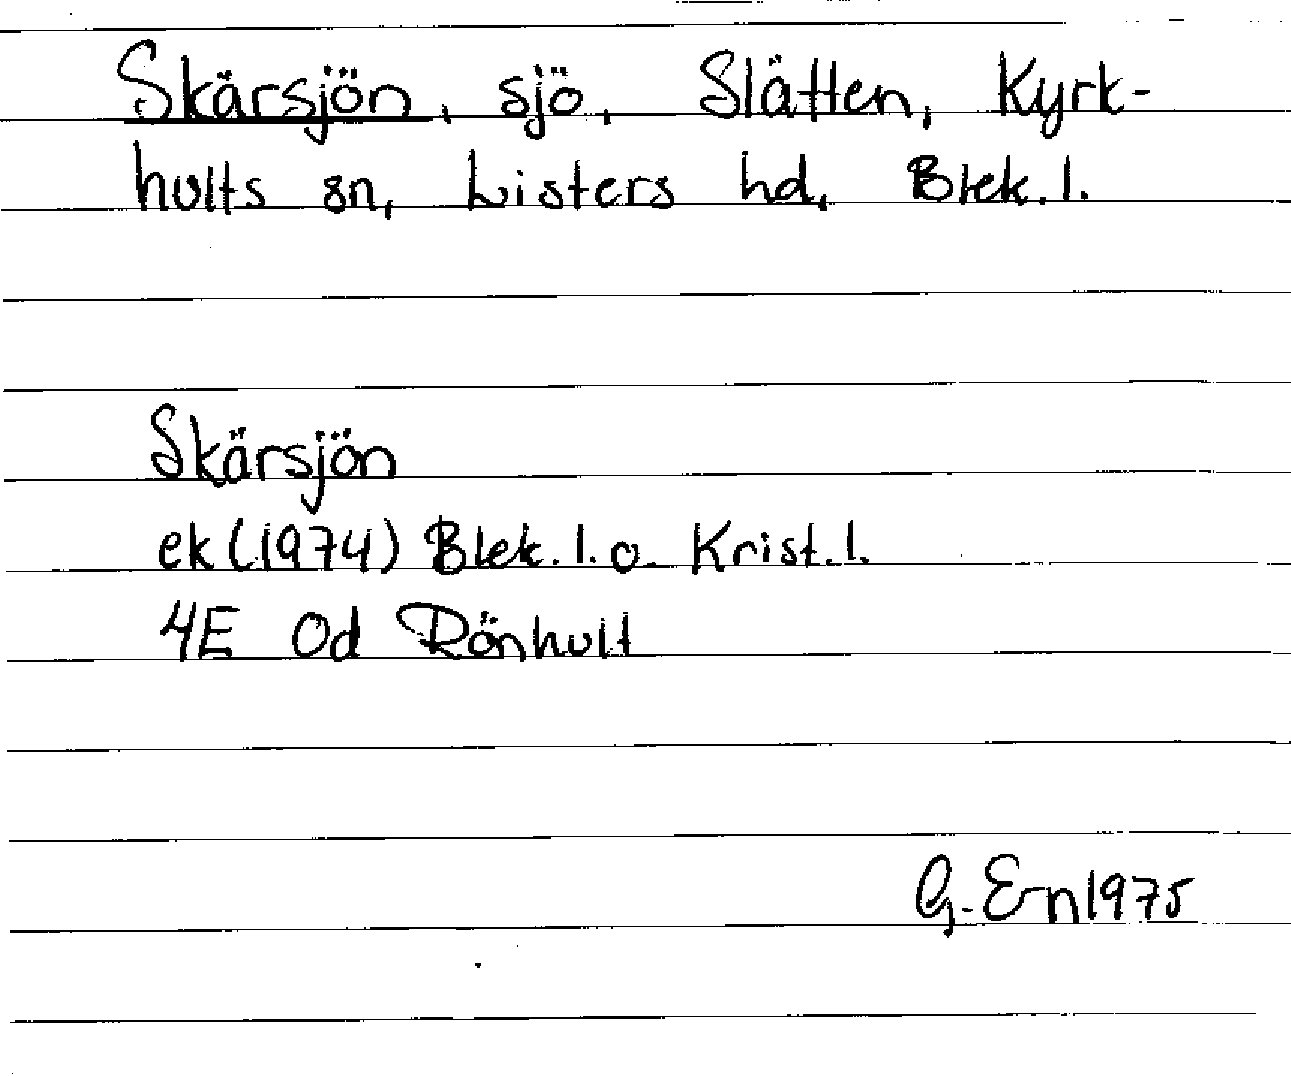 Skärsjön, sjö, Slätten, Kyrk-
hults sn, Listers hd, Blek. l.
Skärsjön
ek (1974) Blek. l. o. Krist. l.
4E 0d Rönhult
G. Ern 1975